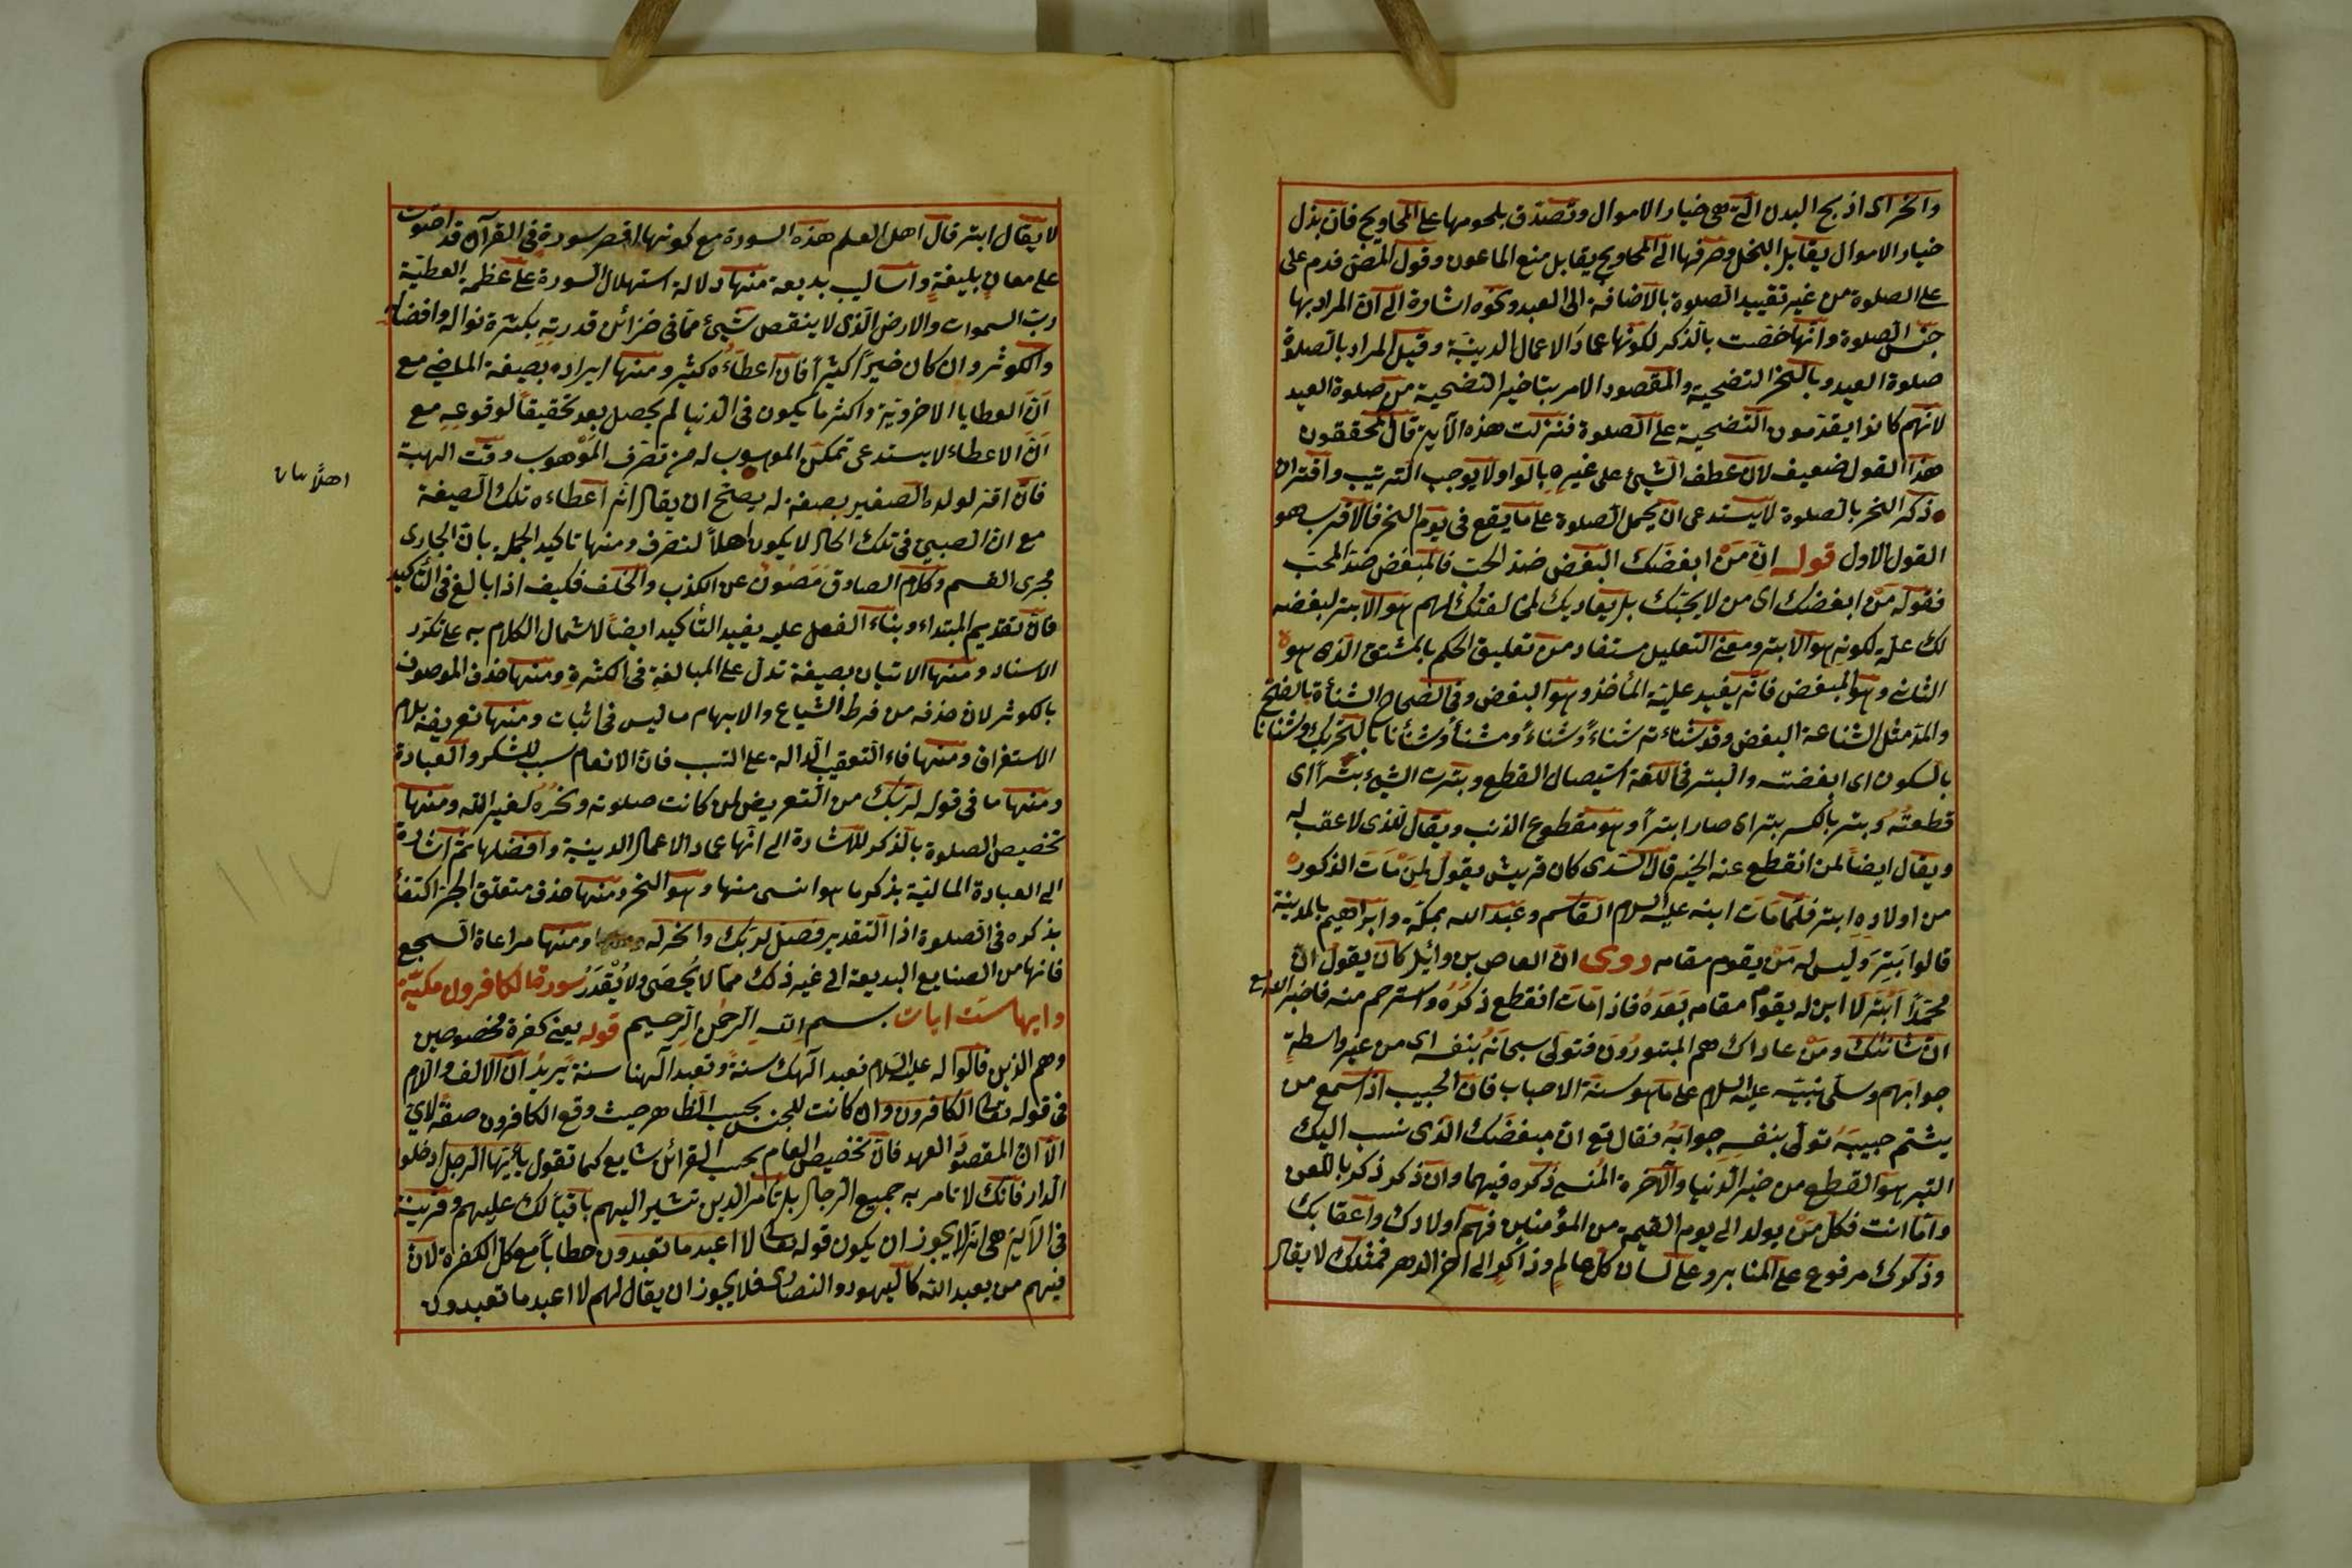 وانحر اى اذبح البدن التى هى خيار الاموال وتصدق بلحومها على المحاويج فان بذل
خيار الاموال يقابل البخل وصرفها الى المحاويج يقابل منع الماعون وقول المصن فدم على
على الصلوة من غير تقييد الصلوة بالاضافة الى العيد ونحوه اشارة الى ان المراد بها
جنس الصلوة وانها خصت بالذكر لكونها عماد الاعمال الدينية وقيل المراد بالصلوة
صلوة العيد وبالنحر التضحية والمقصود الامر بتاخير التضحية من صلوة العيد
لانهم كانوا يقدمون التضحية على الصلوة فنزلت هذه الآية قال المحققون
هذا القول ضعيف لان عطف الشئ على غيره بالواو لا يوجب الترتيب واقتران
ذكر النحر بالصلوة لا يستدعى ان يحمل الصلوة على ما يقع فى يوم النحر فالاقرب هو
القول الاول قوله ان من ابغضك البغض ضد الحب فالمبغض ضد المحب
فقوله من ابغضك اى من لا يحبك بل يعاديك لمخالفتك لهم هو الابتر لبغضه
لك علة لكونه هو الابتر ومعنى التعليل مستفاد من تعليق الحكم بالمشتق الذى هو
الشانئ وهو المبغض فانه يفيد علية المأخذ وهو البغض وفى الصحاح الشنأة بالفتح
والمد مثل الشناعة البغض وقد شنأته شنأً وشنأً ومشنأً وشنأنا بالتحريك وشنأنا
بالسكون اى ابغضته والبتر فى اللغة استيصال القطع وبترت الشئ بترا اى
قطعته وبتر بالكسر بترا اى صار ابترا وهو مقطوع الذنب ويقال للذى لا عقب له
ويقال ايضا لمن انقطع عنه الخير قال السدى كان قريش يقول لمن مات الذكور
من اولاده ابتر فلما مات ابنه عليه السلام القاسم وعبد الله بمكة وابراهيم بالمدينة
قالوا بتر وليس له من يقوم مقامه روى ان العاص بن وائل كان يقول ان
محمدا ابتر لا ابن له يقوم مقامه بعده فاذا مات انقطع ذكره واسترحم منه فاخبر الله تع
ان شانئك ومن عاداك هم المبتورون فتولى سبحانه بنفسه اى من غير واسطة
جوابهم وسلى نبيه عليه السلام على ما هو سنة الاحباب فان الحبيب اذا سمع من
يشتم حبيبه تولى بنفسه جوابه فقال تع ان مبغضك الذى نسب اليك
البتر هو القطع من خير الدنيا والآخرة المنسى ذكره فيهما وان ذكر ذكر باللعن
واما انت فكل من يولد الى يوم القيمة من المؤمنين فهم اولادك واعقابك
وذكرك مرفوع على المنابر وعلى لسان كل عالم وذاكر الى اخر الدهر فمثلك لا يقال
لا يقال ابتر قال اهل العلم هذه السورة مع كونها اقصر سورة فى القرآن قد احتوت
على معان بليغة واساليب بديعة منها دلالة استهلال السورة على عظمة العطية
رب السموات والارض الذى لا ينقص شئ مما فى خزائن قدرته بكثرة نواله وافضاله
والكوثر وان كان خيرا كثيرا فان اعطاءه كثير ومنها ايراده بصيغة الماضى مع
ان العطايا الاخروية واكثر ما يكون فى الدنيا لم يحصل بعد تحقيقا لوقوعه مع
ان الاعطاء لا يستدعى تمكن الموهوب له من تصرف الموهوب وقت الهبة
فان اقر لولده الصغير بصيغة له يصح ان يقال انه اعطاءه تلك الصيغة
مع ان الصبى فى تلك الحال لا يكون اهلا لتصرف ومنها تاكيد الجملة بان الجارى
مجرى القسم وكلام الصادق مصون عن الكذب والخلف فكيف اذا بالغ فى التأكيد
فان تقديم المبتداء وبناء الفعل عليه يفيد التأكيد ايضا لاشمال الكلام به على تكرر
الاسناد ومنها الاتيان بصيغة تدل على المبالغة فى الكثرة ومنها حذف الموصوف
بالكوثر لان حذفه من فرط الشياع والابهام ما ليس فى اثبات ومنها تعريفه بلام
الاستغراق ومنها فاء التعقيب الدالة على التسبب فان الانعام سبب للشكر والعبادة
ومنها ما فى قوله لربك من التعريض لمن كانت صلوته ونحره لغير الله ومنها
تخصيص الصلوة بالذكر للاشارة الى انها عماد الاعمال الدينية وافضلها ثم اشارة
الى العبادة المالية بذكر ما هو اسنى منها وهو النحر ومنها حذف متعلق الجزء اكتفاء
بذكره فى الصلوة اذ التقدير فصل لربك وانحر له ومنها مراعاة السجع
فانها من الصنايع البديعة الى غير ذلك مما لا يحصى ولا يقدر سورة الكافرون مكية
وايها ست ايات بسم الله الرحمن الرحيم قوله يعنى كفرة مخصوصين
وهم الذين قالوا له عليه السلام نعبد الهك سنة وتعبد الهنا سنة يريد ان الالف واللام
فى قوله تعالى الكافرون وان كانت للجنس بحسب الظاهر حيث وقع الكافرون صفة لاى
الا ان المقصود العهد فان تخصيص العام بحسب القرائن شايع كما تقول يا ايها الرجل ادخلوا
الدار فانك لا تامر به جميع الرجال بل تامر الذين تشير اليهم باقبالك عليهم وقرينة
فى الآية هى انه لا يجوز ان يكون قوله تعالى لا اعبد ما تعبدون خطابا مع كل الكفرة لان
منهم من يعبد الله كاليهود والنصارى فلا يجوز ان يقال لهم لا اعبد ما تعبدون